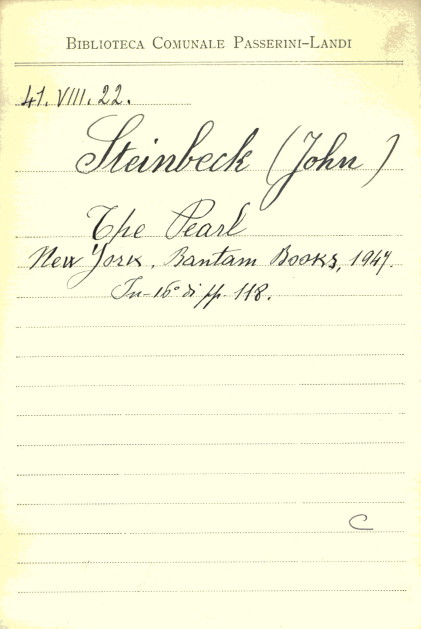 BIBLIOTECA COMUNALE PASSERINI-LANDI
41. VIII. 22.
Steinbeck (John)
The Pearl
New York. Bantam Books, 1947.
In-16° di pp. 118.
C